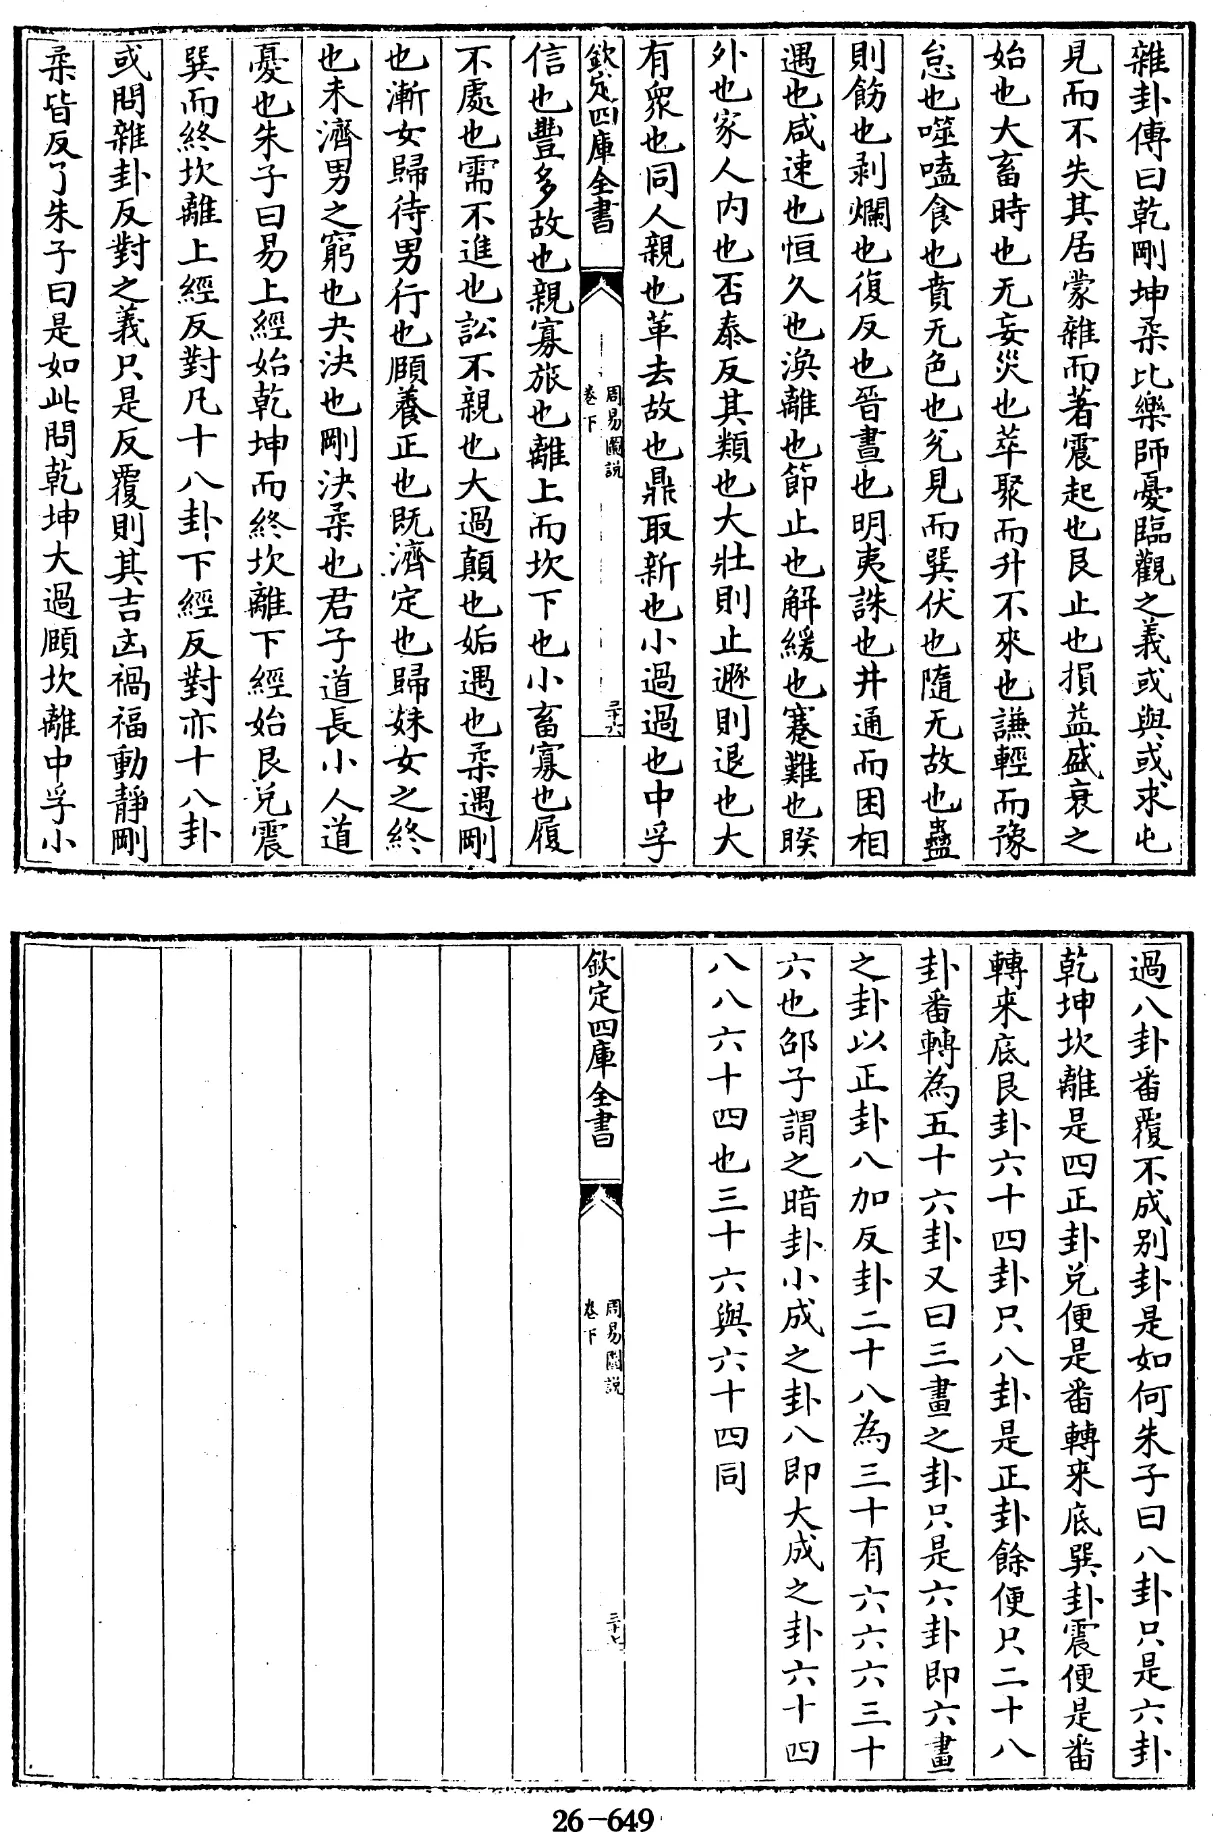 雜卦傳曰乾剛坤柔比樂師憂臨觀之義或與或求屯
見而不失其居蒙雜而著震起也艮止也損益盛衰之
始也大畜時也无妄災也萃聚而升不來也謙輕而豫
怠也噬嗑食也賁无色也兌見而巽伏也隨无故也蠱
則飭也剥爛也復反也晉晝也明夷誅也井通而困相
遇也咸速也恒久也渙離也節止也解緩也蹇難也睽
外也家人内也否泰反其類也大壯則止遯則退也大
有眾也同人親也革去故也鼎取新也小過過也中孚
欽定四庫全書
周易圖說
卷下
三十六
信也豐多故也親寡旅也離上而坎下也小畜寡也履
不處也需不進也訟不親也大過顛也姤遇也柔遇剛
也漸女歸待男行也頤養正也既濟定也歸妹女之終
也未濟男之窮也夬決也剛決柔也君子道長小人道
憂也朱子曰易上經始乾坤而終坎離下經始艮兌震
巽而終坎離上經反對凡十八卦下經反對亦十八卦
或問雜卦反對之義只是反覆則其吉凶禍福動靜剛
柔皆反了朱子曰是如此問乾坤大過頤坎離中孚小
過八卦番覆不成别卦是如何朱子曰八卦只是六卦
乾坤坎離是四正卦兌便是番轉来底巽卦震便是番
轉来底艮卦六十四卦只八卦是正卦餘便只二十八
卦番轉為五十六卦又曰三畫之卦只是六卦即六畫
之卦以正卦八加反卦二十八為三十有六六六三十
六也邵子謂之暗卦小成之卦八即大成之卦六十四
八八六十四也三十六與六十四同
欽定四庫全書
周易圖說
卷下
三十七
26-649